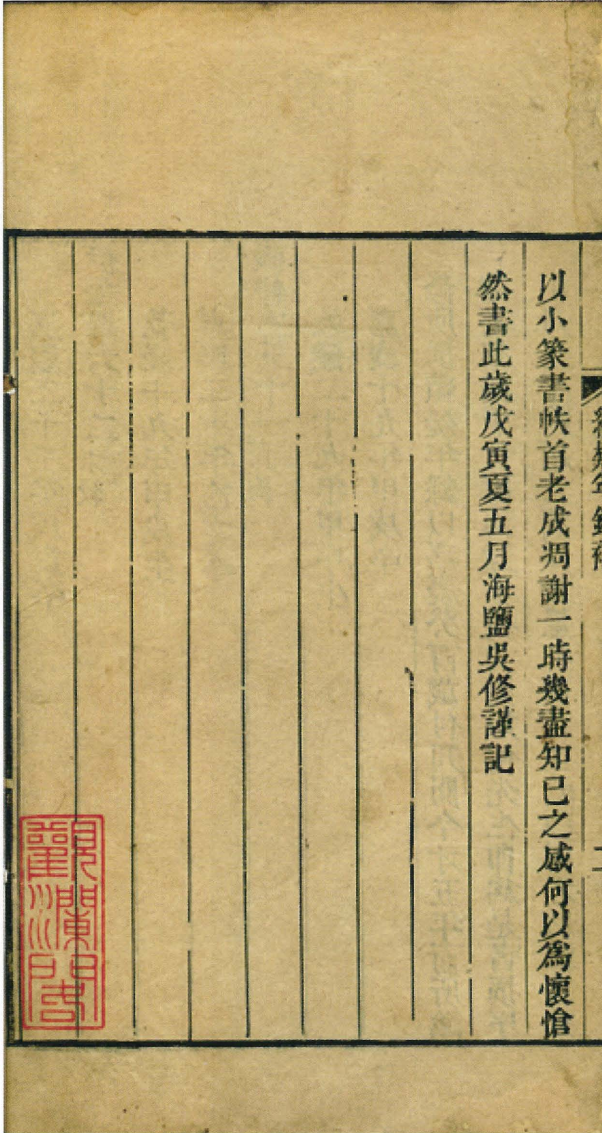 以小篆書帙首老成凋謝一時幾盡知已之感何以爲懷愴
然書此歲戊寅夏五月海鹽吳修謹記